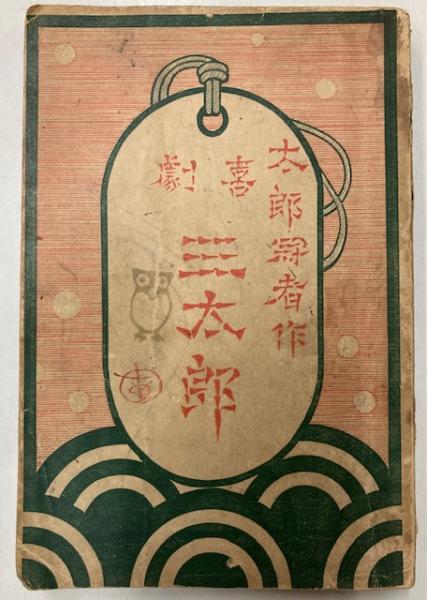 太郎冠者作
喜劇
三太郎